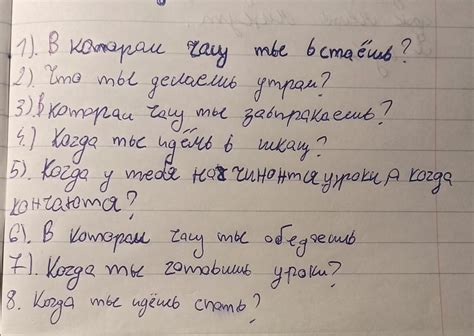 1). В котором часу ты встаёшь?
2). Что ты делаешь утром?
3) В котором часу ты завтракаешь?
4.) Когда ты идёшь в школу?
5). Когда у тебя начинаются уроки, А когда
кончаются?
6). В котором часу ты обедаешь
7). Когда ты готовишь уроки?
8. Когда ты идёшь спать?